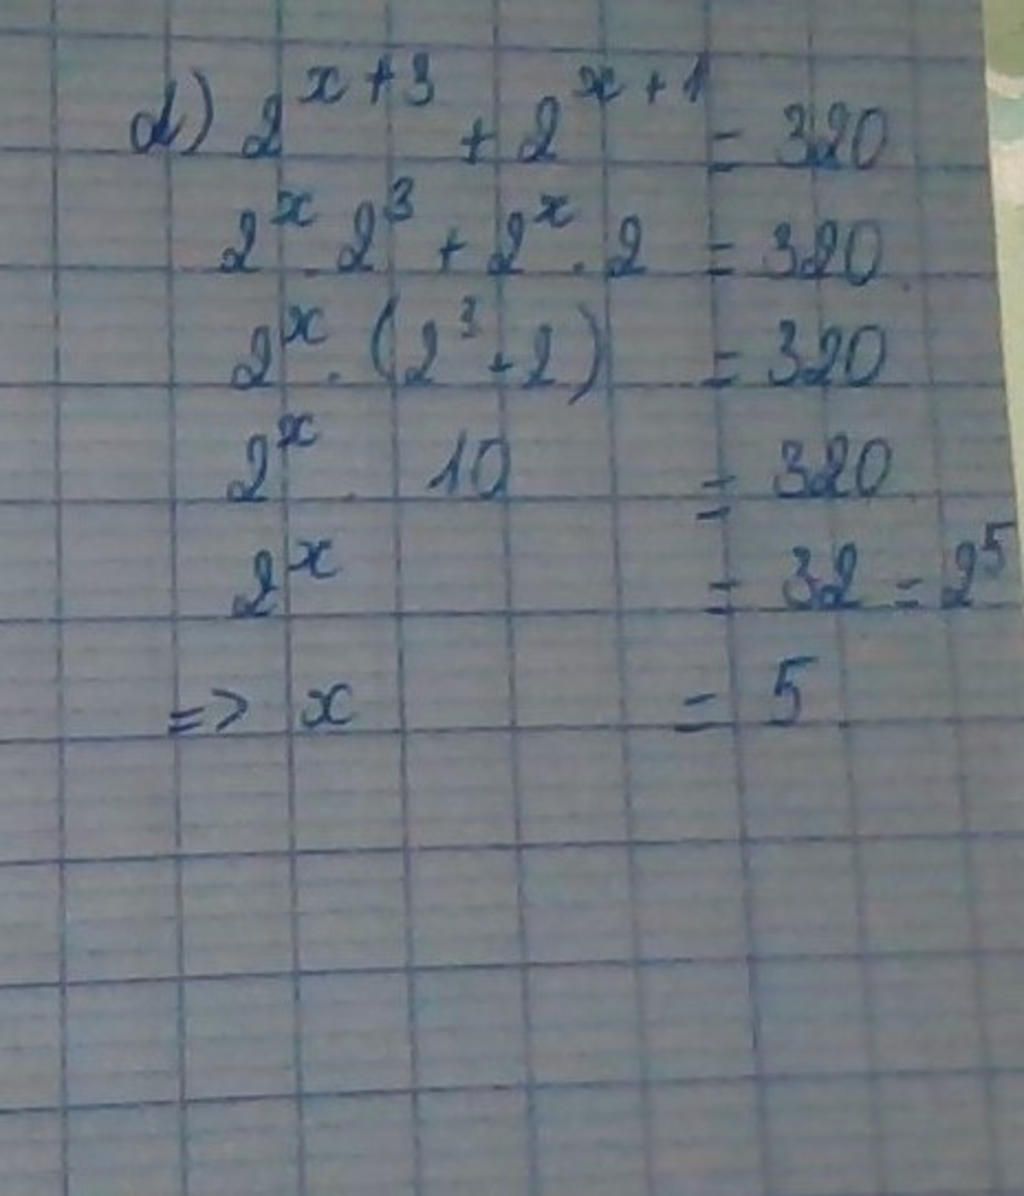 d) 2^{x+3} + 2^{x+1} = 320
2^x . 2^3 + 2^x . 2 = 320
2^x . (2^3 + 2) = 320
2^x . 10 = 320
2^x = 32 = 2^5
=> x = 5